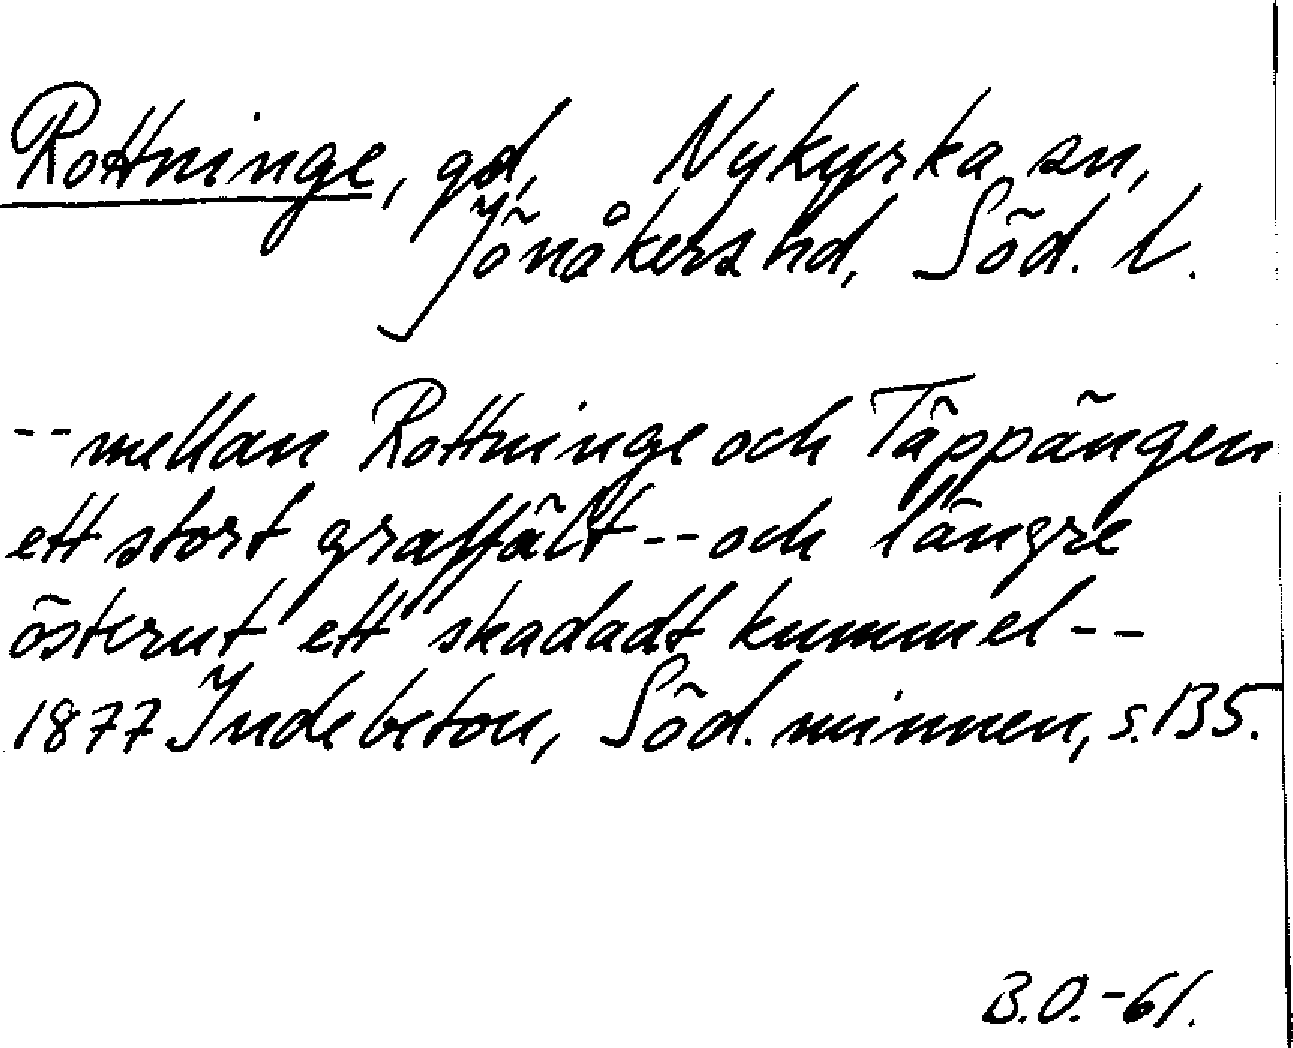 Rottninge, gd, Nykyrka sn,
Jönåkers hd, Söd. l.
-- mellan Rottninge och Täppängen
ett stort graffält -- och längre
österut ett skadadt kummel --
1877 Indebetou, Söd. minnen, s. 135.
B.O. -61.